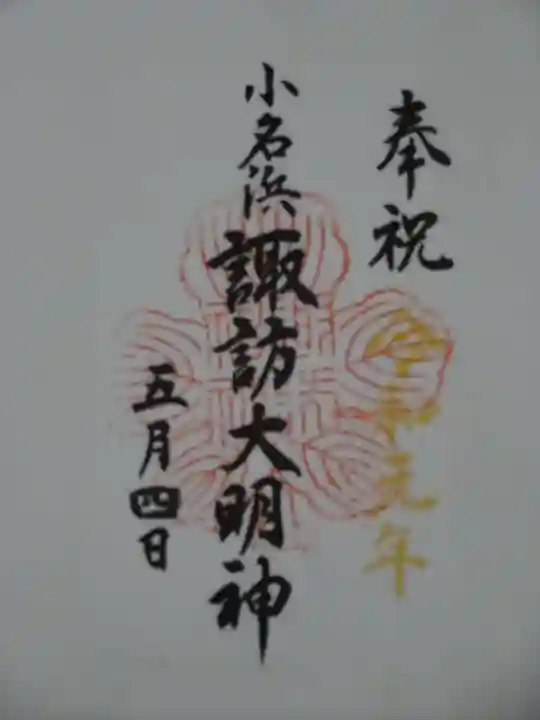 奉祝
令和元年
小名浜
諏訪大明神
五月四日